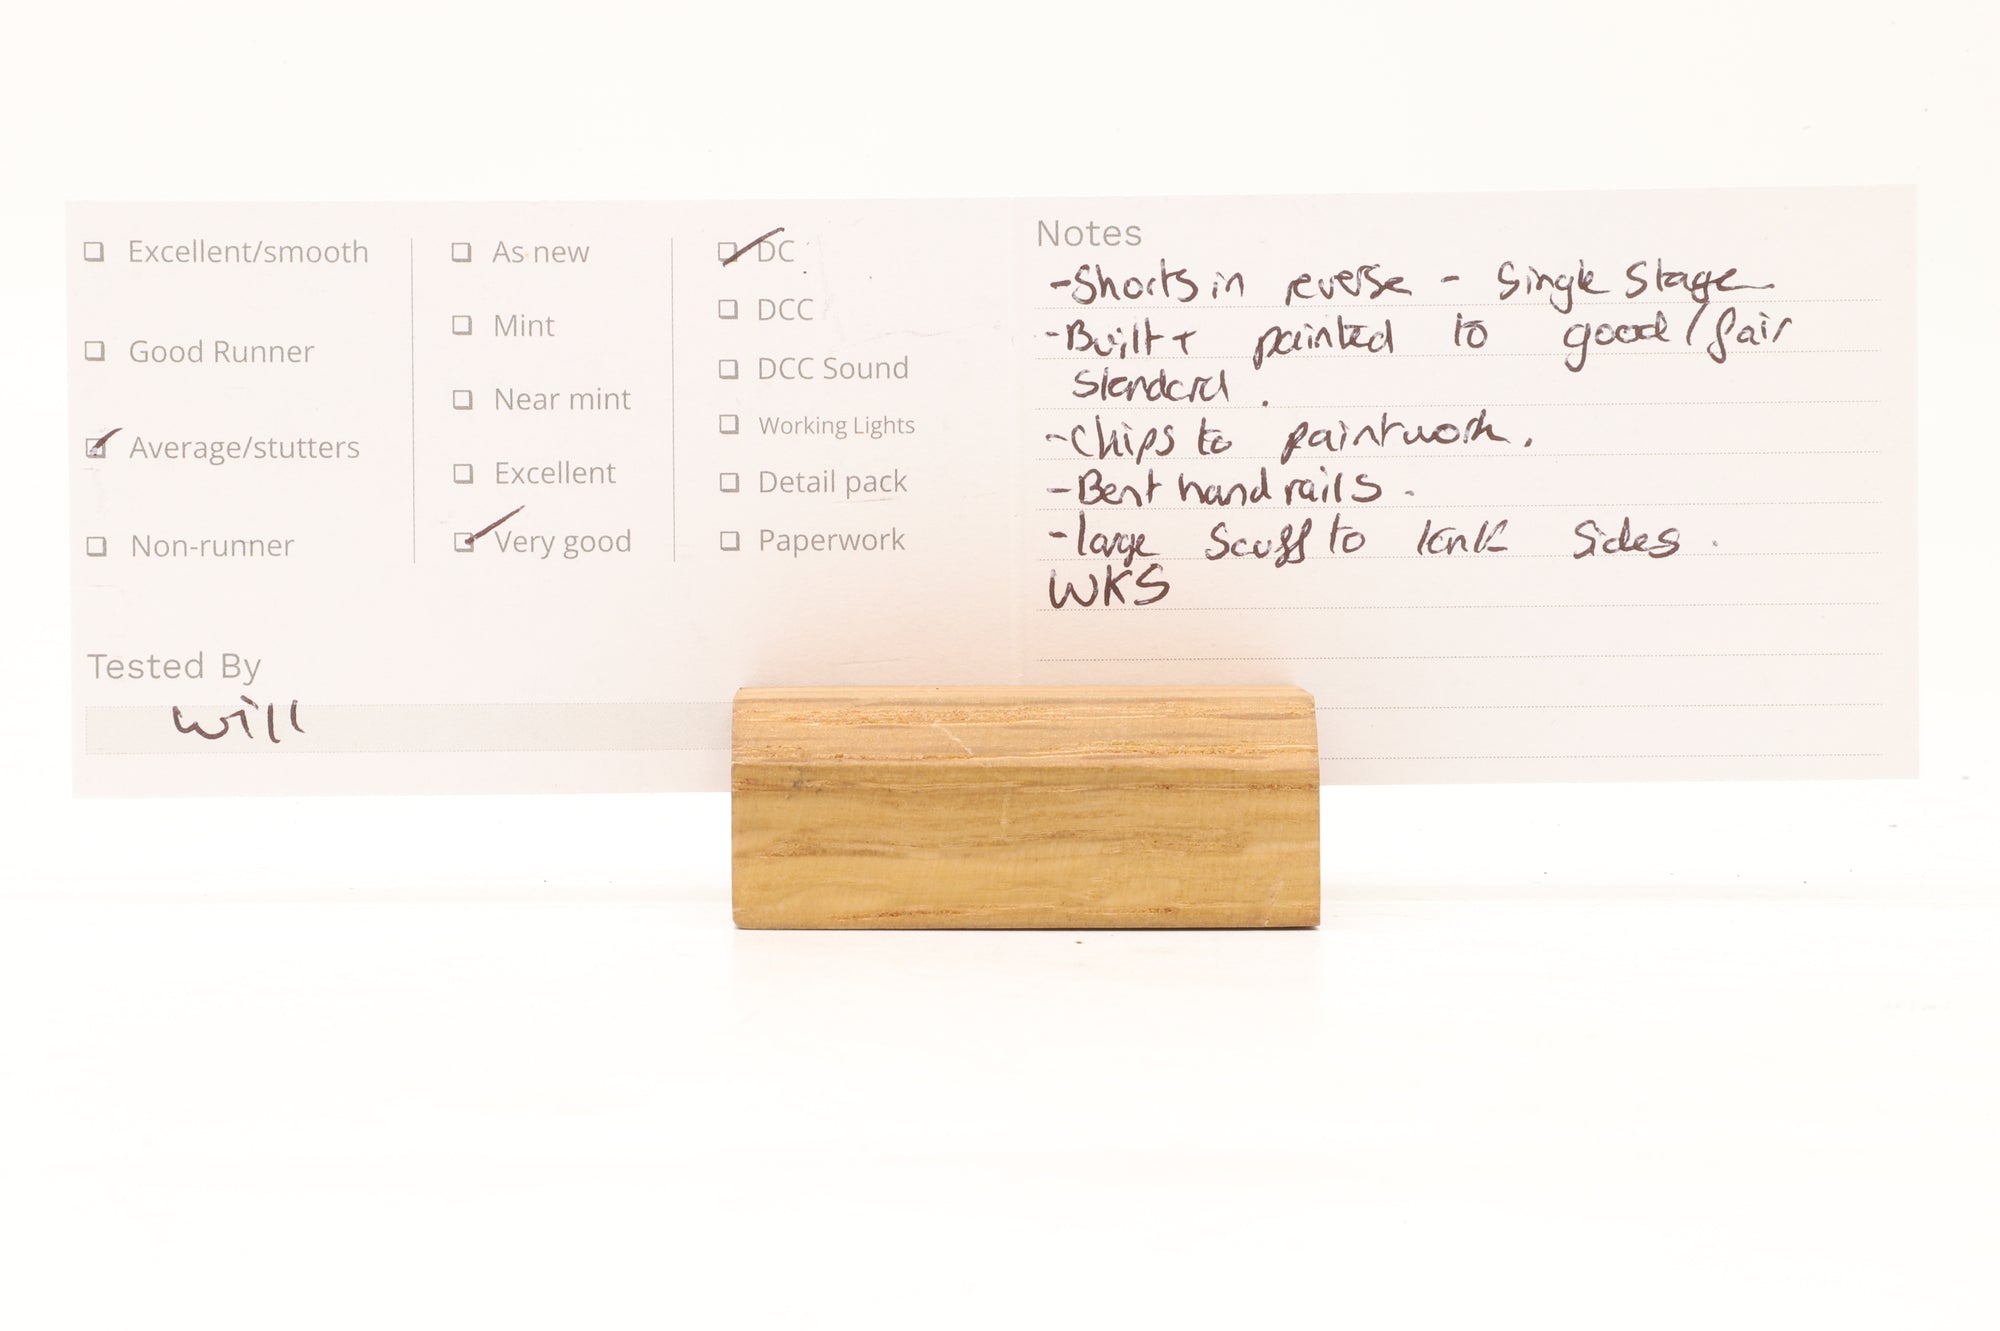 Excellent/smooth
Good Runner
Average/stutters
Non-runner
As new
Mint
Near mint
Excellent
Very good
DC
DCC
DCC Sound
Working Lights
Detail pack
Paperwork
Tested By
Will
Notes
- Shorts in reverse - Single Stage
- Built + painted to good / fair
standard.
- Chips to paintwork.
- Bent hand rails.
- large scuff to tank sides.
WKS